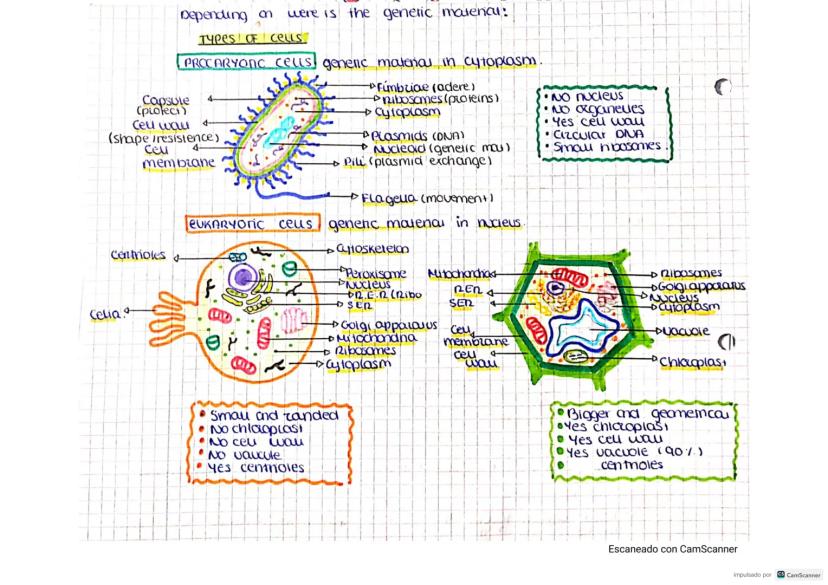 Depending on were is the genetic material:
TYPES OF CELLS
PROCARYOTIC CELLS genetic material in cytoplasm.
Capsule
(protect)
Cell wall
(shape/resistence)
Cell
membrane
Fimbriae (adere)
Ribosomes (proteins)
Cytoplasm
Plasmids (DNA)
Nucleoid (genetic mat)
Pili (plasmid exchange)
Flagella (movement)
• No nucleus
• No organelles
• Yes cell wall
• Circular DNA
• Small ribosomes.
EUKARYOTIC CELLS genetic material in nucleus.
Centrioles
Celia
Cytoskeleton
Peroxisome
Nucleus
R.E.R (Ribo
SER
Golgi apparatus
Mitochondria
Ribosomes
Cytoplasm
Mitochondria
RER
SER
Cell
membrane
Cell
wall
Ribosomes
Golgi apparatus
Nucleus
Cytoplasm
Vacuole
Chloroplast
• Small and
• No chloroplast
• No cell wall
• No vacuole
• Yes centrioles
• Bigger and geometrical
• Yes chloroplast
• Yes cell wall
• Yes vacuole (90%)
• centrioles
Escaneado con CamScanner
impulsado por CS CamScanner